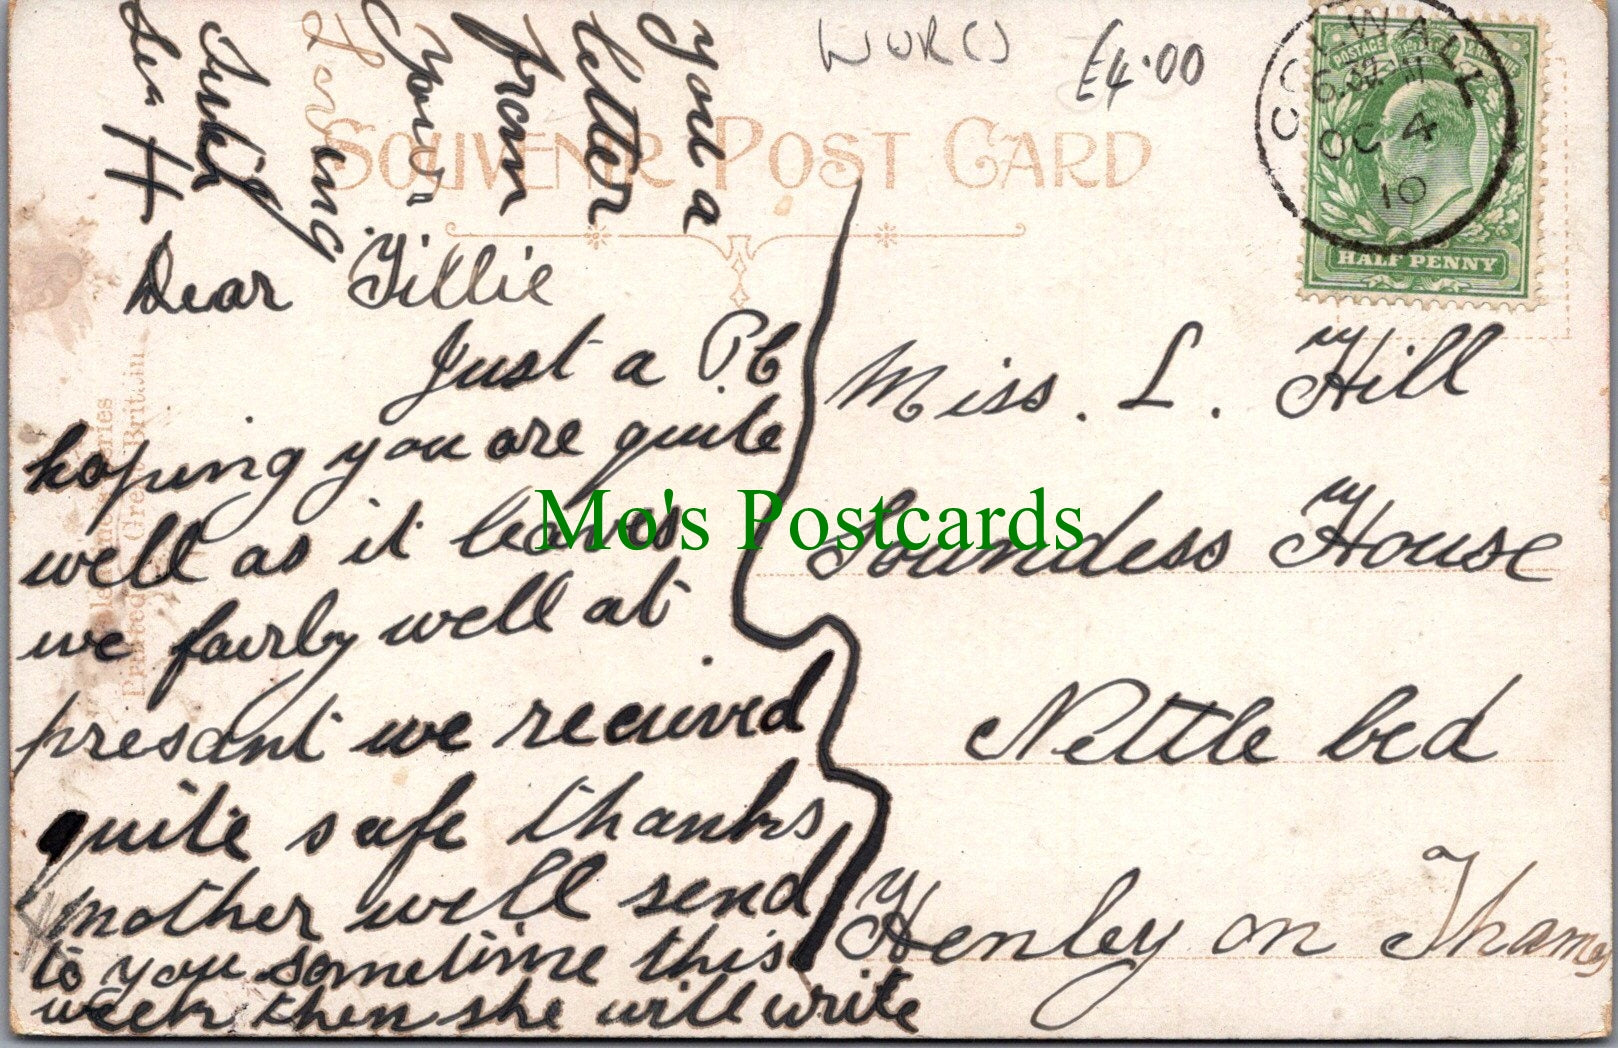 WORCS £4.00
SOUVENIR POST CARD
COLWALL
6.30
OC 4
10
POSTAGE REVENUE
HALF PENNY
Dear Tillie
Just a PC
hoping you are quite
well as it leaves
we fairly well at
presant we recieved
quite safe thanks
mother well send
to you sometime this
week then she will write
you a
letter
from
Your
Loving
Miss. L. Hill
Soundess House
Nettle bed
Henley on Thames
Great Britain
Mo's Postcards